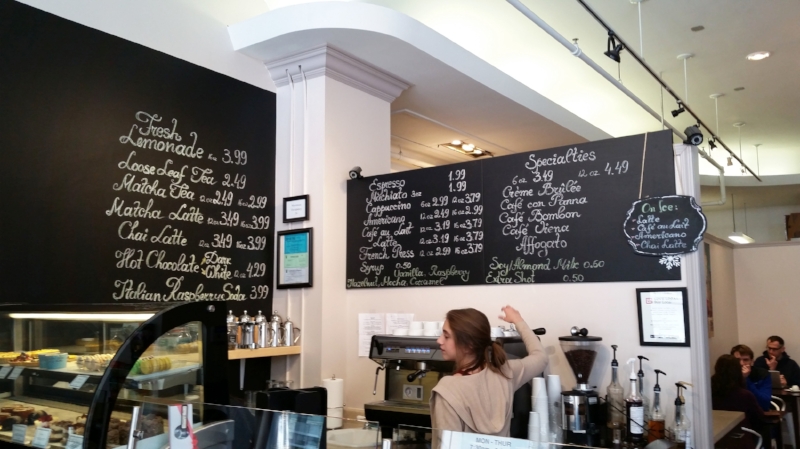 Fresh
Lemonade 3.99
Loose Leaf Tea 2.49
Matcha Tea 12oz 2.49 16oz 2.99
Matcha Latte 12oz 3.49 16oz 3.95
Chai Latte 12oz 3.49 16oz 3.99
Hot Chocolate Dark
White 12oz 4.29
Italian Raspberry Soda 3.99
Espresso 1.99
Machiato 3oz 1.99
Cappuccino 6oz 2.99 12oz 3.79
Americano 12oz 2.49 16oz 2.99
Café au Lait 12oz 3.19 16oz 3.79
Latte 12oz 3.19 16oz 3.79
French Press 12oz 2.99 16oz 3.79
Syrup 0.59 Vanilla, Raspberry
Hazelnut, Mocha, Caramel
Specialties
6oz 3.49 12oz 4.49
Crème Brûlée
Café con Panna
Café Bombon
Café Viena
Affogato
Soy/Almond Milk 0.50
Extra Shot 0.50
On Ice:
Latte
Café au Lait
Americano
Chai Latte
MON - THUR